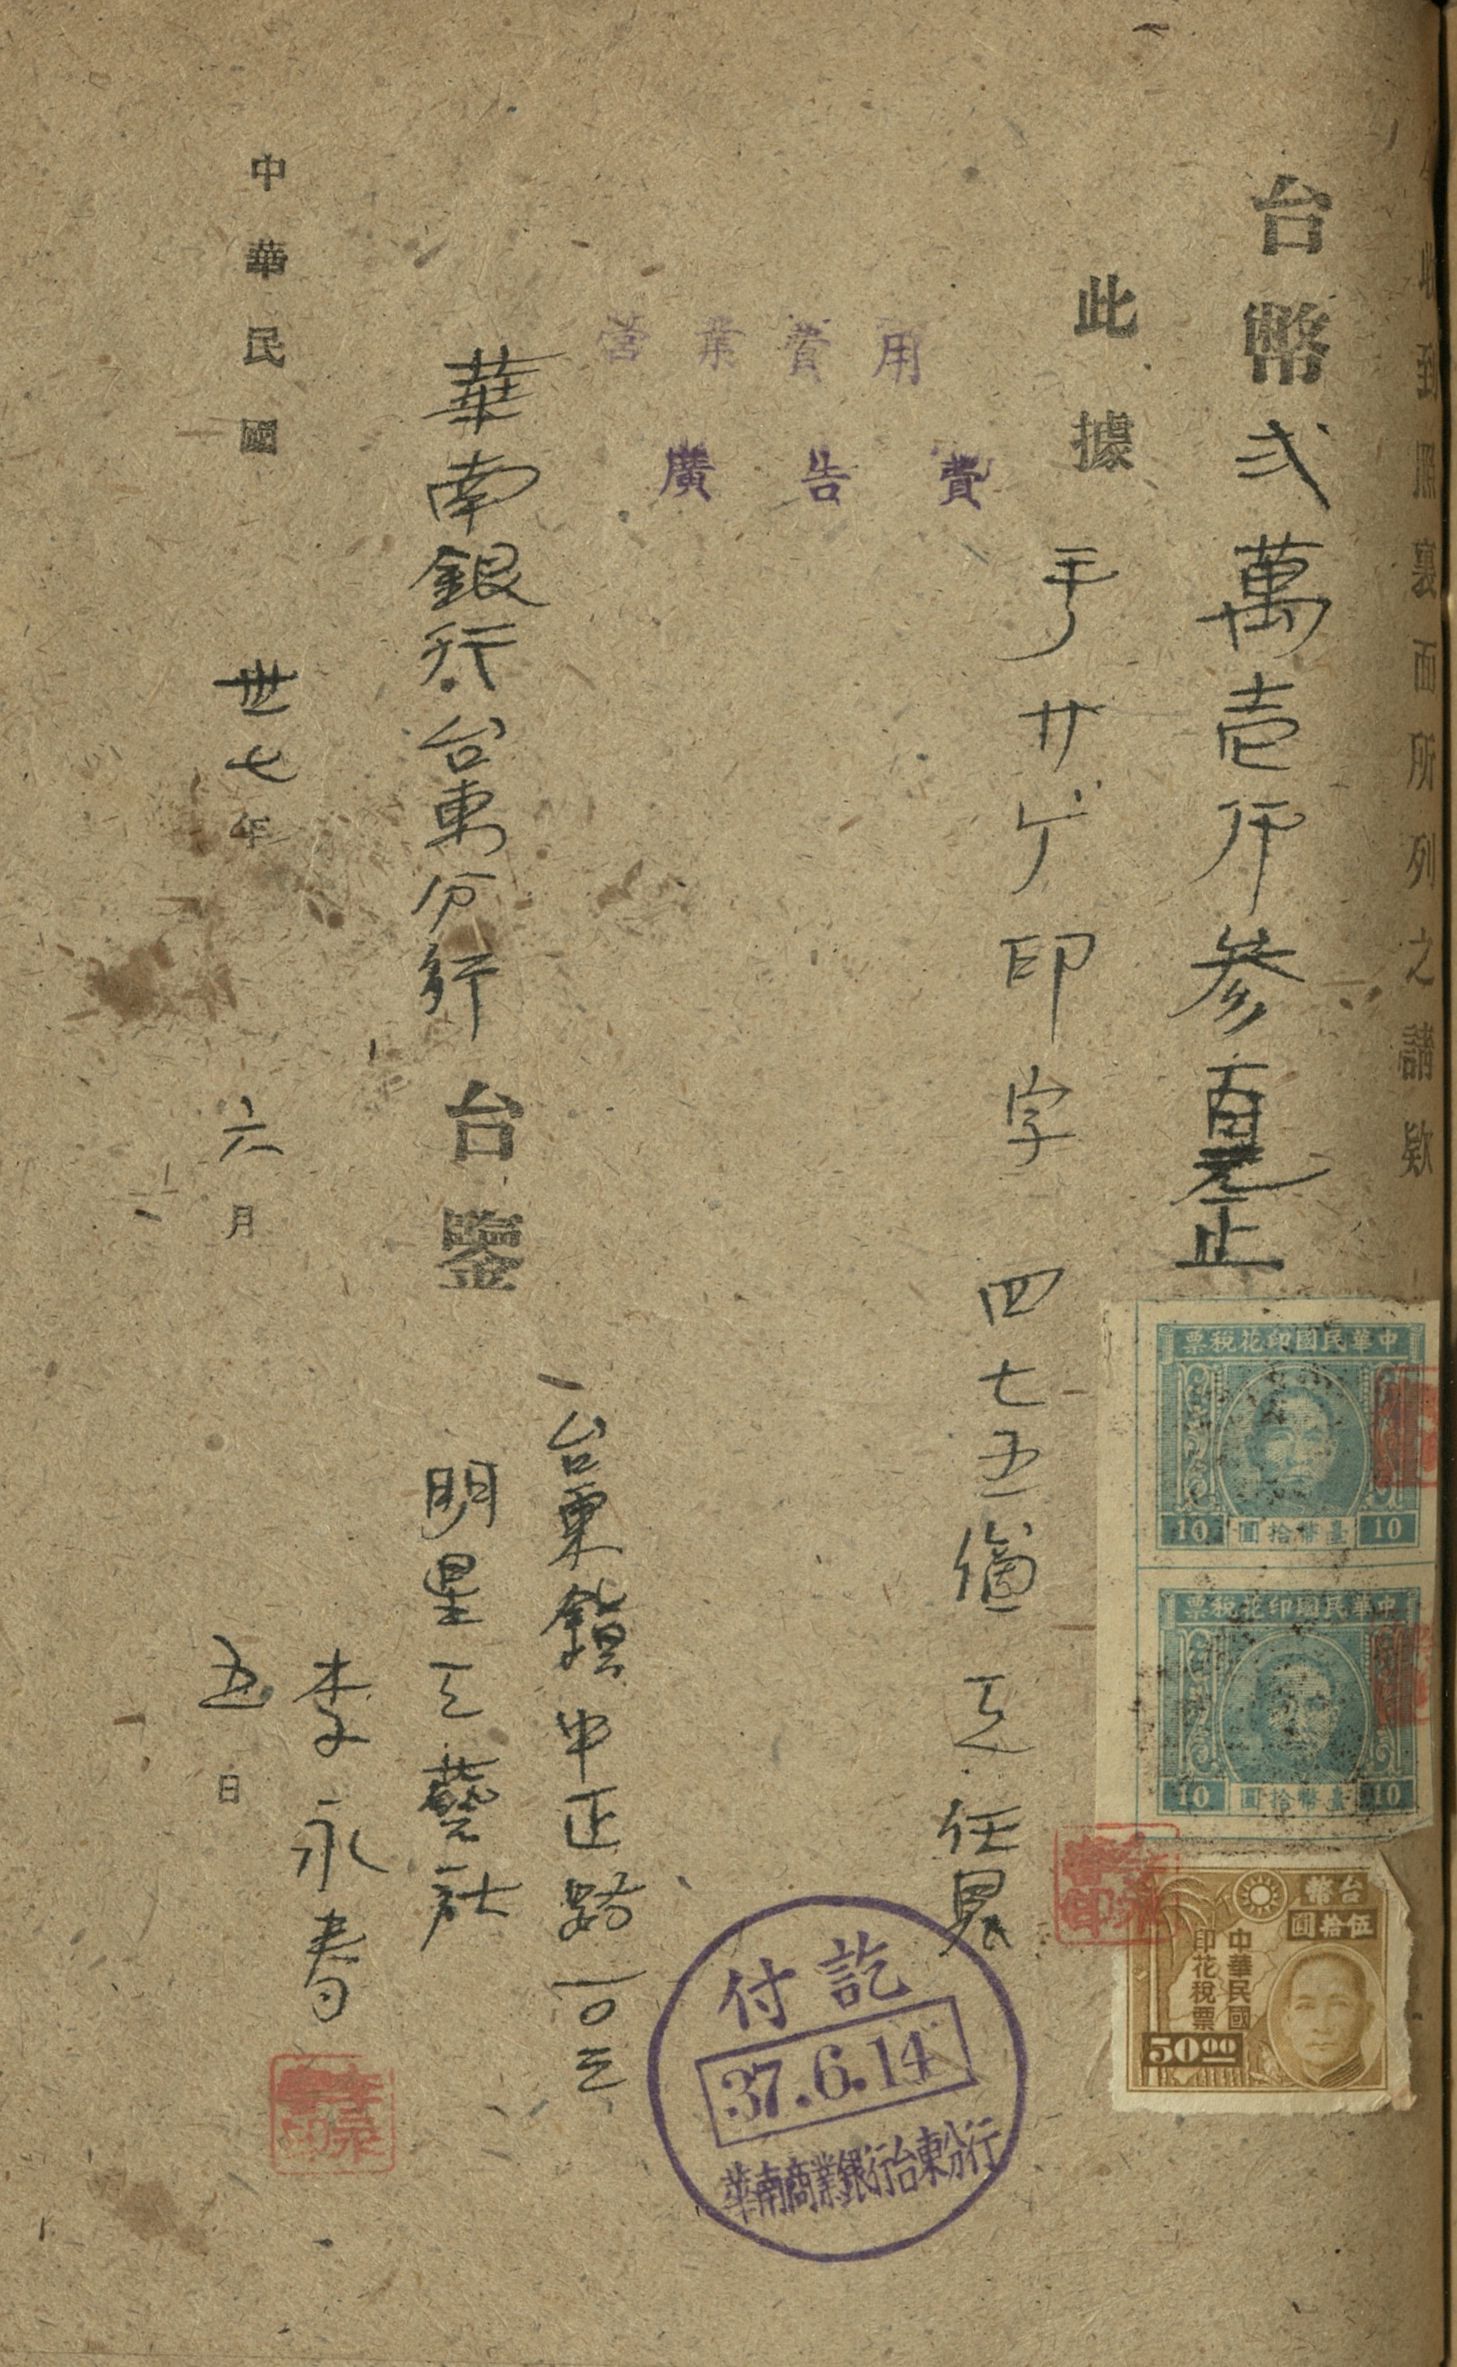 收到照裏面所列之請欵
台幣弍萬壱仟參百元正
此據
手サゲ印字 四七五個 工任
營業費用
廣告費
華南銀行台東分行 台鑒
台東鎮中正路一〇三
明星工藝社
李永春
中華民國 卅七年 六月 五日
中華民國印花稅票
10 臺幣拾圓 10
中華民國印花稅票
10 臺幣拾圓 10
台幣
伍拾圓
中華民國
印花稅票
50.00
付訖
37.6.14
華南商業銀行台東分行
李永春印
李永春印